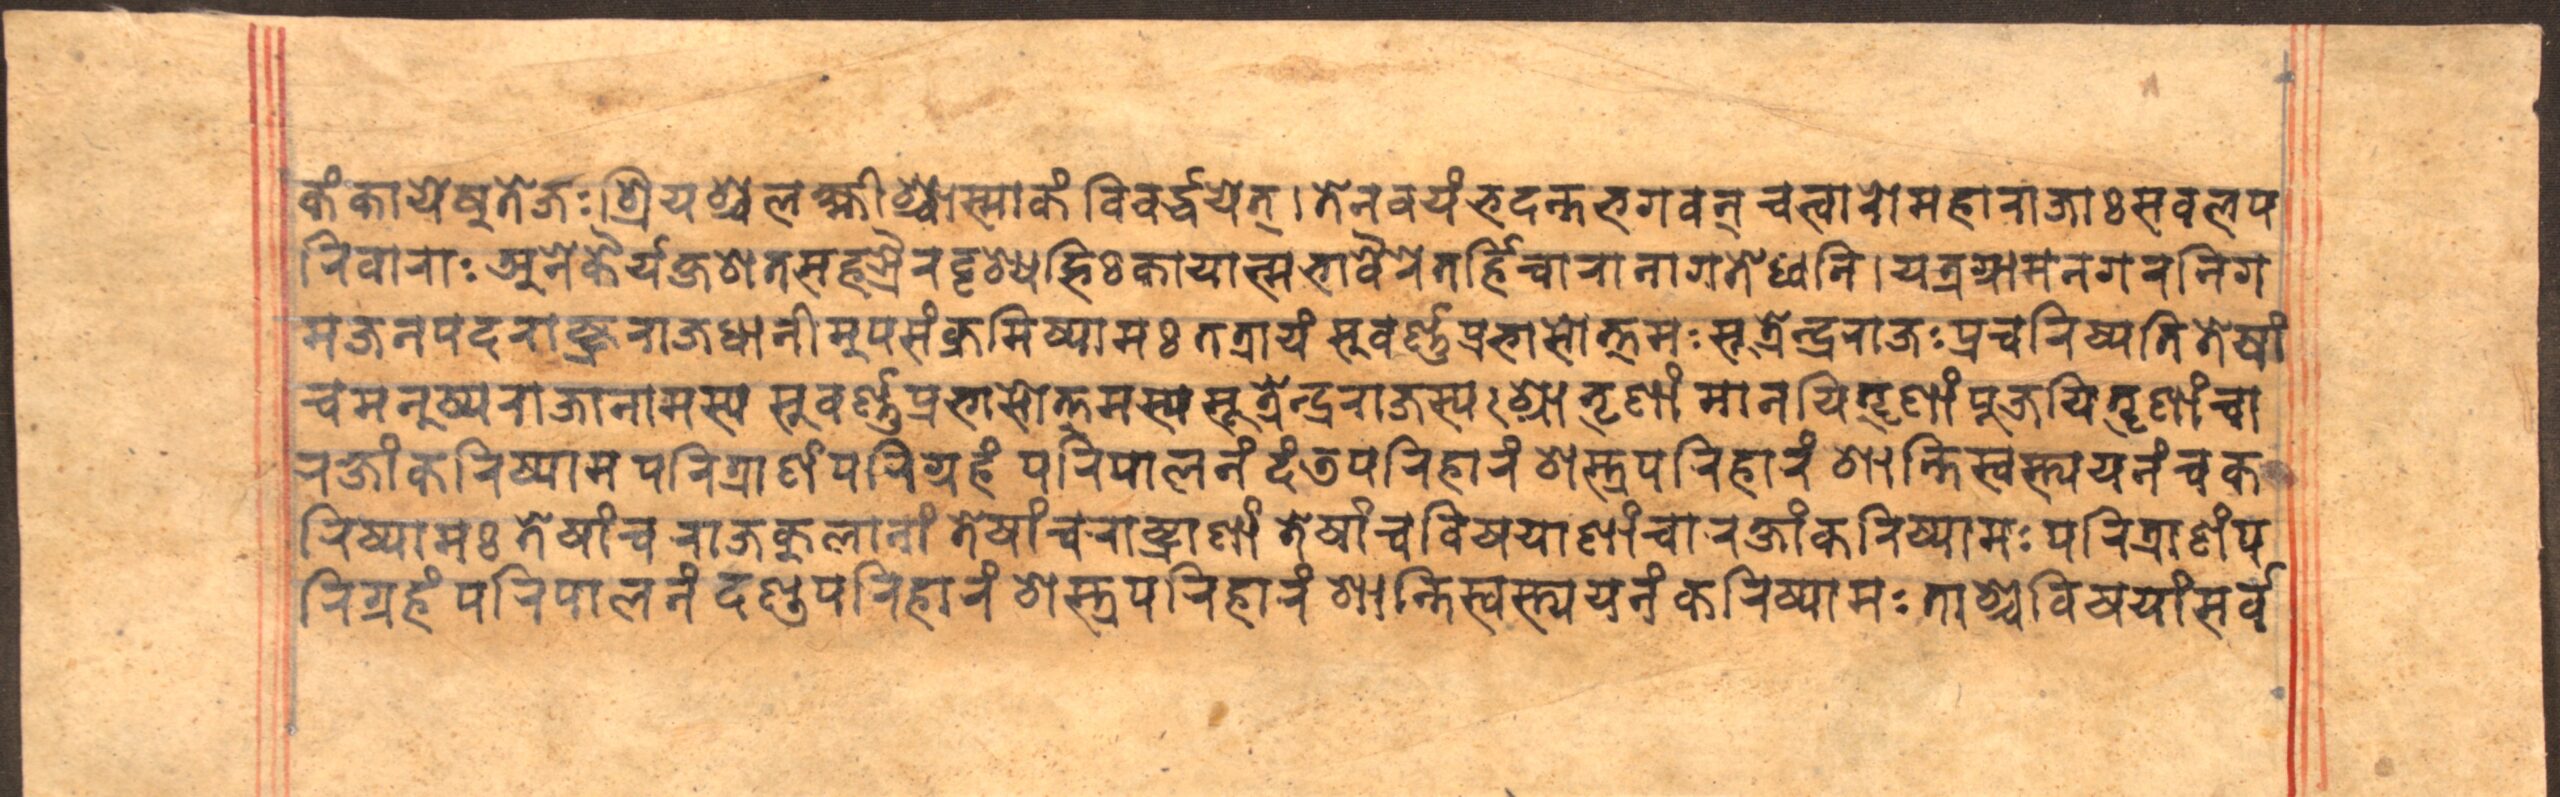 कंकायेषुतेजःश्रियश्चलक्ष्मीश्चास्माकं विवर्द्धयेत्।तेनवयंभदन्तभगवन् चत्वारोमहाराजाःसवलप
रिवाराः अनेकैर्यक्षशतसहस्रैरदृश्यद्भिःकायात्मभावैरेतर्हिचारानागतेध्वनि।यत्रग्रामनगरनिग
मजनपदराष्ट्रराजधानीमुपसंक्रमिष्यामः तत्रायं सुवर्ण्णप्रभासोत्तमःसूत्रेन्द्रराजःप्रचरिष्यतितेषां
चमनुष्यराजानामस्य सुवर्ण्णप्रभासोत्तमस्य सूत्रेन्द्रराजस्यःश्रोतृणां मानयितृणां पूजयितृणांचा
रक्षांकरिष्याम परित्राणंपरिग्रहं परिपालनं दंडपरिहारं शस्त्रपरिहारं शान्तिस्वस्त्ययनंचक
रिष्यामः तेषांच राजकुलानां तेषांचराष्ट्राणां तेषांचविषयाणांचारक्षांकरिष्यामःपरित्राणंप
रिग्रहंपरिपालनं दण्डपरिहारं शस्त्रपरिहारं शान्तिस्वस्त्ययनं करिष्यामःताश्चविषयांसर्व